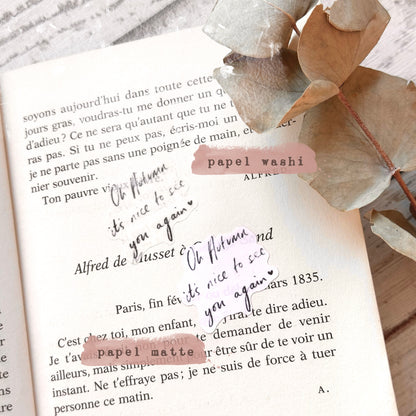 soyons aujourd'hui dans toute cette
jours gras, voudras-tu me donner un
d'adieu? Ce ne sera qu'autant que tu ne
ras pas. Si tu ne peux pas, écris-moi un
je ne parte pas sans une poignée de main, et
nier souvenir.
Ton pauvre
papel washi
ALFRE
Oh Autumn
it's nice to see
you again
Alfred de Musset
Oh Autumn
it's nice to see
you again
Paris, fin
mars 1835.
C'est chez toi, mon enfant,
dire adieu.
Je t'av
te demander de venir
papel matte
ailleurs, mais
être sûr de te voir un
instant. Ne t'effraye pas; je ne suis de force à tuer
personne ce matin.
A.